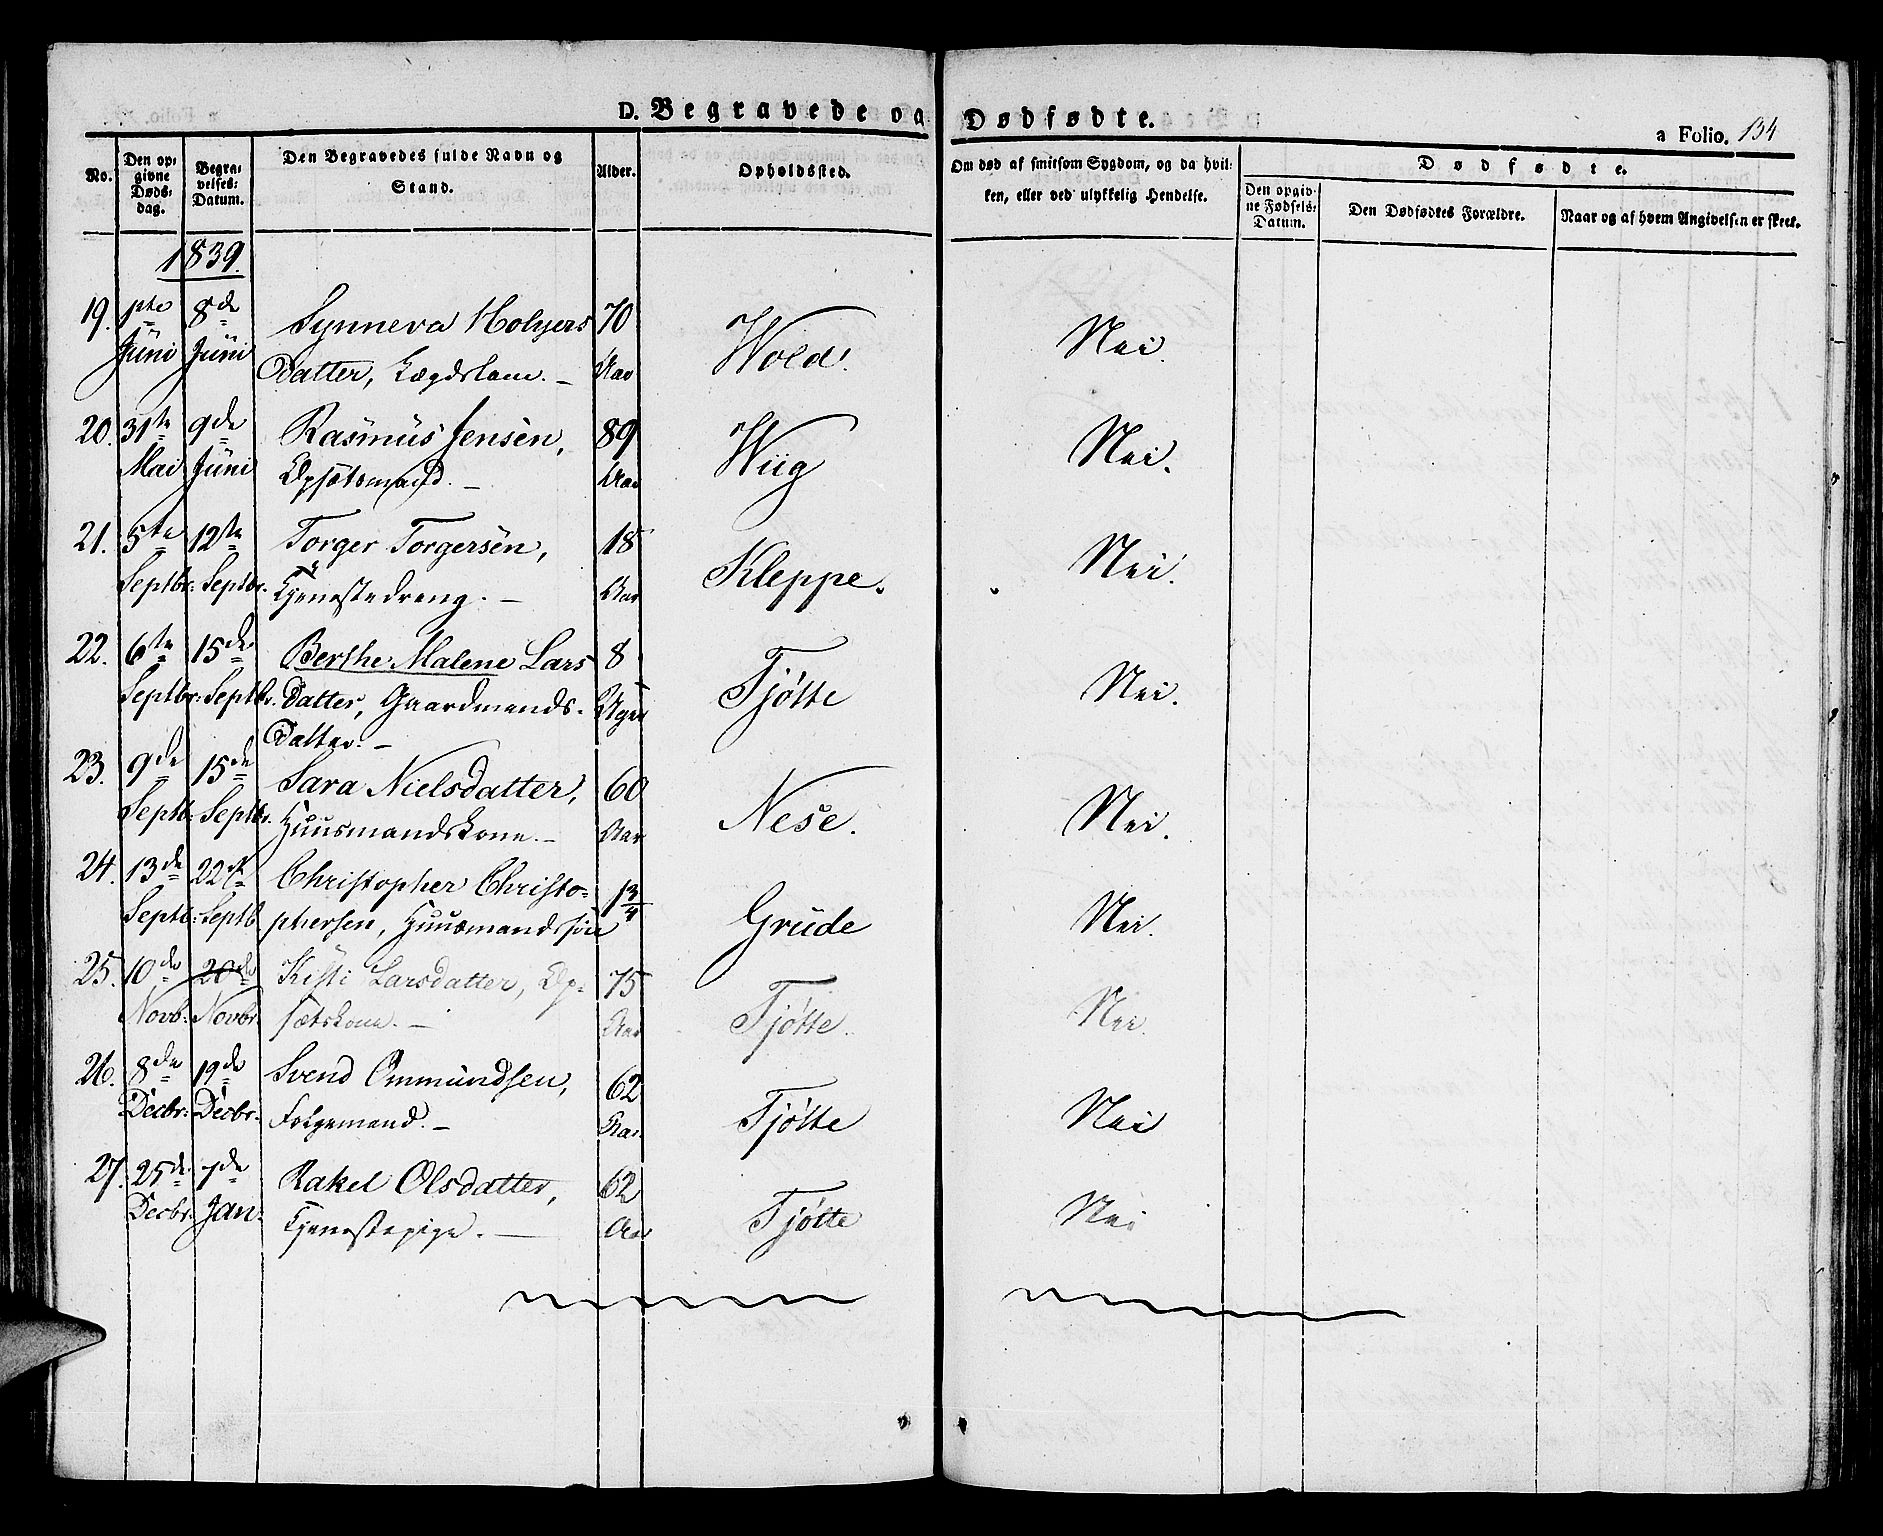 D. Begravede og Dødfødte.
a Folio. 134
No.
Den op=
givne
Døds=
dag.
Begra=
velses=
Datum.
Den Begravedes fulde Navn og
Stand.
Alder.
Opholdssted.
Om død af smitsom Sygdom, og da hvil=
ken, eller ved ulykkelig Hendelse.
Dødfødte.
Den opgiv=
ne Fødsels=
Datum.
Den Dødfødtes Forældre.
Naar og af hvem Angivelsen er skeet.
1839.
19. 1ste 8de Synneva Holgers 70 Wold. Nei.
Juni Juni Datter, Lægdslem. – Aar
20. 31te 9de Rasmus Jensen, 89 Wiig Nei.
Mai Juni Opsætsmand. – Aar
21. 5te 12te Torger Torgersen, 18 Kleppe. Nei.
Septbr: Septbr. Tjenestedreng. – Aar
22. 6te 15de Berthe Malene Lars 8 Tjøtte Nei.
Septbr: Septbr. Datter, Gaardmands- Uger
Datter. –
23. 9de 15de Sara Nielsdatter, 60 Nese. Nei.
Septb: Septbr. Huusmandskone. – Aar
24. 13de 22de Christopher Christo= 1 3/4 Grude Nei.
Septb: Septb phersen, Huusmandssøn
25. 10de 20de Kisti Larsdatter, Op= 75 Tjøtte. Nei.
Novb: Novbr. sætskone. – Aar
26. 8de 19de Svend Ommundsen, 62 Tjøtte Nei
Decbr: Decbr. Folgemand. – Aar.
27. 25de 7de Rakel Olsdatter, 62 Tjøtte Nei
Decbr. Jan. Tjenestepige. – Aar